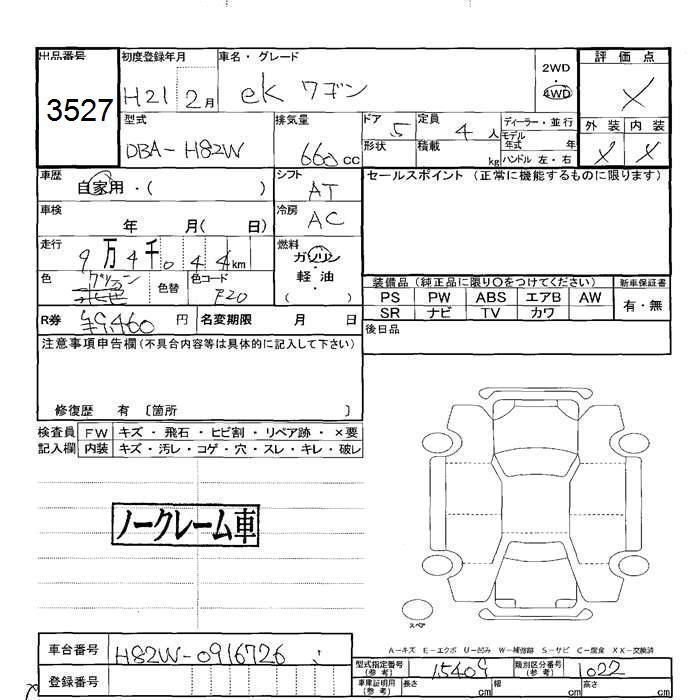 出品番号 初度登録年月 車名・グレード 2WD 評価点
3527 H21 2月 ek ワゴン 4WD ×
型式 排気量 ドア 定員 ディーラー・並行 外装 内装
DBA-H82W 660cc 5 4人 モデル年式 年 × ×
形状 積載 kg ハンドル 左・右
車歴 自家用・( ) シフト AT セールスポイント (正常に機能するものに限ります)
車検 年 月( 日) 冷房 AC
走行 9万4千044km 燃料 ガソリン
軽・油
色 色替 色コード F20 ( )
装備品(純正品に限り○をつけてください) 新車保証書
PS PW ABS エアB AW 有・無
SR ナビ TV カワ
R券 ¥9,460円 名変期限 月 日 後日品
注意事項申告欄(不具合内容等は具体的に記入して下さい)
修復歴 有 〔箇所 〕
検査員 FW キズ・飛石・ヒビ割・リペア跡・×要
記入欄 内装 キズ・汚レ・コゲ・穴・スレ・キレ・破レ
ノークレーム車
スペア
A-キズ E-エクボ U-凹み W-補修跡 S-サビ C-腐食 XX-交換済
車台番号 H82W-0916726
型式指定番号(参考) 15409 類別区分番号(参考) 1022
登録番号 車庫証明用(参考) 長さ cm 幅 cm 高さ cm